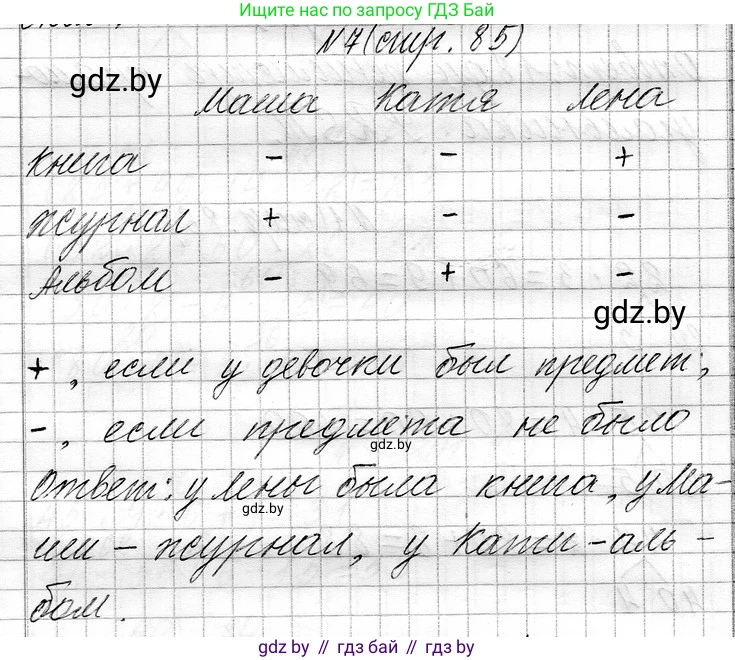 Ищите нас по запросу ГДЗ Бай
N7(стр. 85)
gdz.by
Маша Катя Лена
книга - - +
журнал + - -
Альбом - + -
gdz.by
+, если у девочки был предмет;
-, если предмета не было
gdz.by
Ответ: у Лены была книга, у Ма-
gdz.by
ши - журнал, у Кати - аль-
бом.
gdz.by // гдз бай // гдз.ру